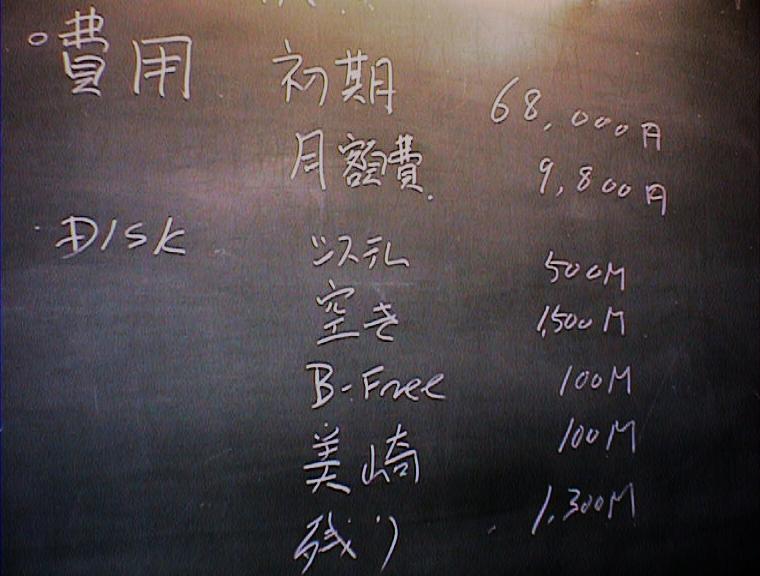 費用 初期 68,000円
月額費 9,800円
DISK システム 500M
空き 1,500M
B-Free 100M
美崎 100M
残り 1,300M